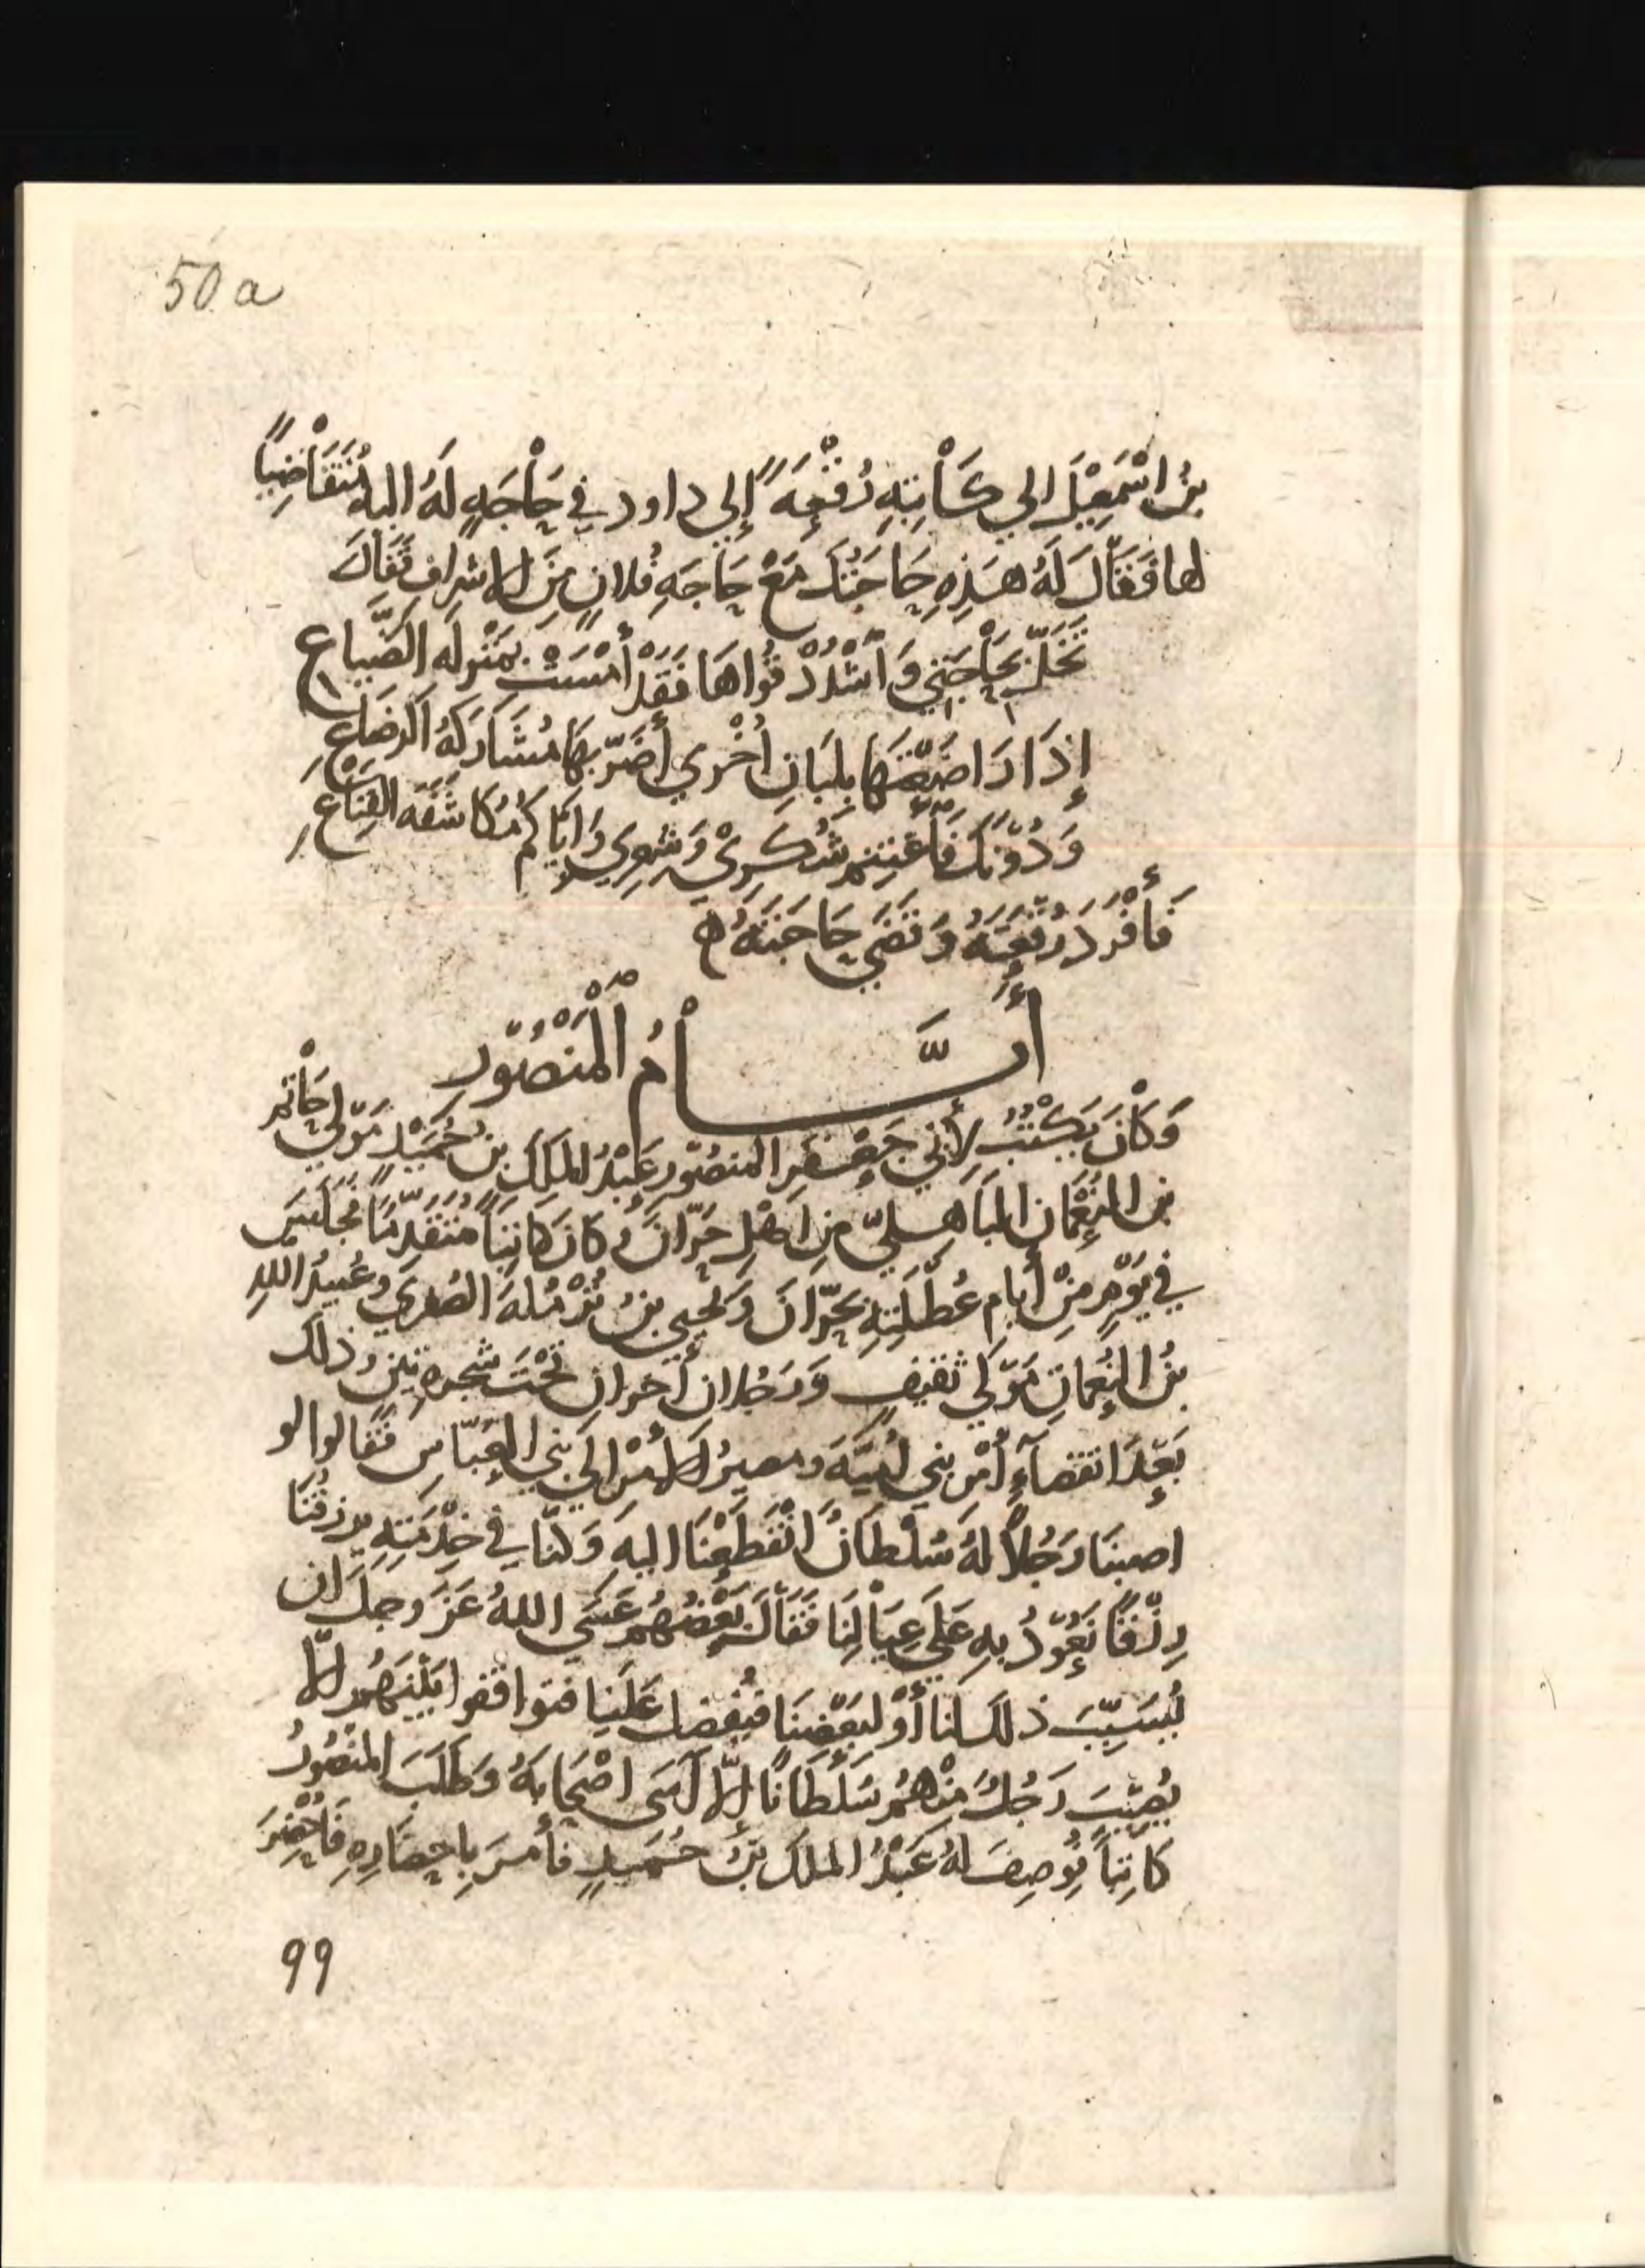 50 a
بنُ اسْمَعِيْلَ الي كَاْتِبِهِ رُقْعَةً إلي داود في حَاْجَةٍ لَهُ اليهِ مُتَقَاْضِيًا
لها فَقَالَ لَهُ هَذِهِ حَاجَتُكَ مَعْ حَاجَةِ فُلانٍ مِنَ الاشراف فَقَالَ
تَخَلَّ بِحَاْجَتِي وَاشْدُدْ قُوَاهَا فَقَدْ أَمْسَتْ بِمَنْزِلَه الضَّيَاعِ
إِذَا رَاضَعْتَهَا بِلِبَانِ أُخْرَي أَضَرَّ بِهَا مُشَارَكَهُ الرضَاعِ
وَدُوْنَكَ فَأَغْتَنِم شُكْرِيْ وَشِعْرِي وَايَّاكُم مُكَاشَفَه القِنَاْعِ
فَأَفْرَدَ رُقْعَتَهُ وَقَضَي حَاجَتَهُ ه
أَيَّـــامُ الْمَنْصُوْرِ
وَكَاْنَ يَكْتُبُ لِأَبِي جَعْفَرِ المنصُوْر عَبْدُ الملِكِ بنُ حُمَيْدٍ مَوْلَي حَاْتِم
بن النُعْمَان البَاهِليّ مِن اهْلِ حَرَّانَ وَكَانَ كَاتِبًا مُتَقَدِّمًا فجَلَسَ
في يَوْمٍ مِنْ أيام عُطْلَتِهِ بِحَرَّانَ وَيَحيي بنُ نُزْمُله الصُّغدِي وعُبيدُ اللهِ
بنُ النُعمَانِ مَوْلَي ثقيفٍ وَرَجُلان أخران تَحْتَ شجرهِ تِيْنٍ وذلك
بَعْدَ انقضَآءِ أَمْرِ بني أُمَيَّةَ ومصيرُ الأَمْرِ الي بني العبَّاسِ فقَالوا لو
اصبنَا رَجُلًا لهُ سُلْطَانُ انْقَطَعْنَا اليهِ وَكُنَّا في خِدْمَتِهِ يرزقُنَا
رِزْقًا نَعُوْدُ بهِ عَلَي عِيَالِنَا فَقَالَ بَعْضُهُم عَسَي اللهُ عَزَّ وجلَّ ان
يُسَبِّبَ ذلك لنا أَوْ لِبَعْضِنَا فيُفضِل عَلَينا فتوافقوا بَيْنَهُم ألّا
يُصِيْبَ رَجُلٌ مِنْهُمْ سُلْطَانًا إلّا آسَي اصْحَابَهُ وَطَلَبَ المَنْصُورُ
كَاتِبًا فَوُصِفَ لهُ عَبْدُ الملك بنُ حُمَيدٍ فأَمَرَ بِاحضَارِهِ فَأُحْضِرَ
99